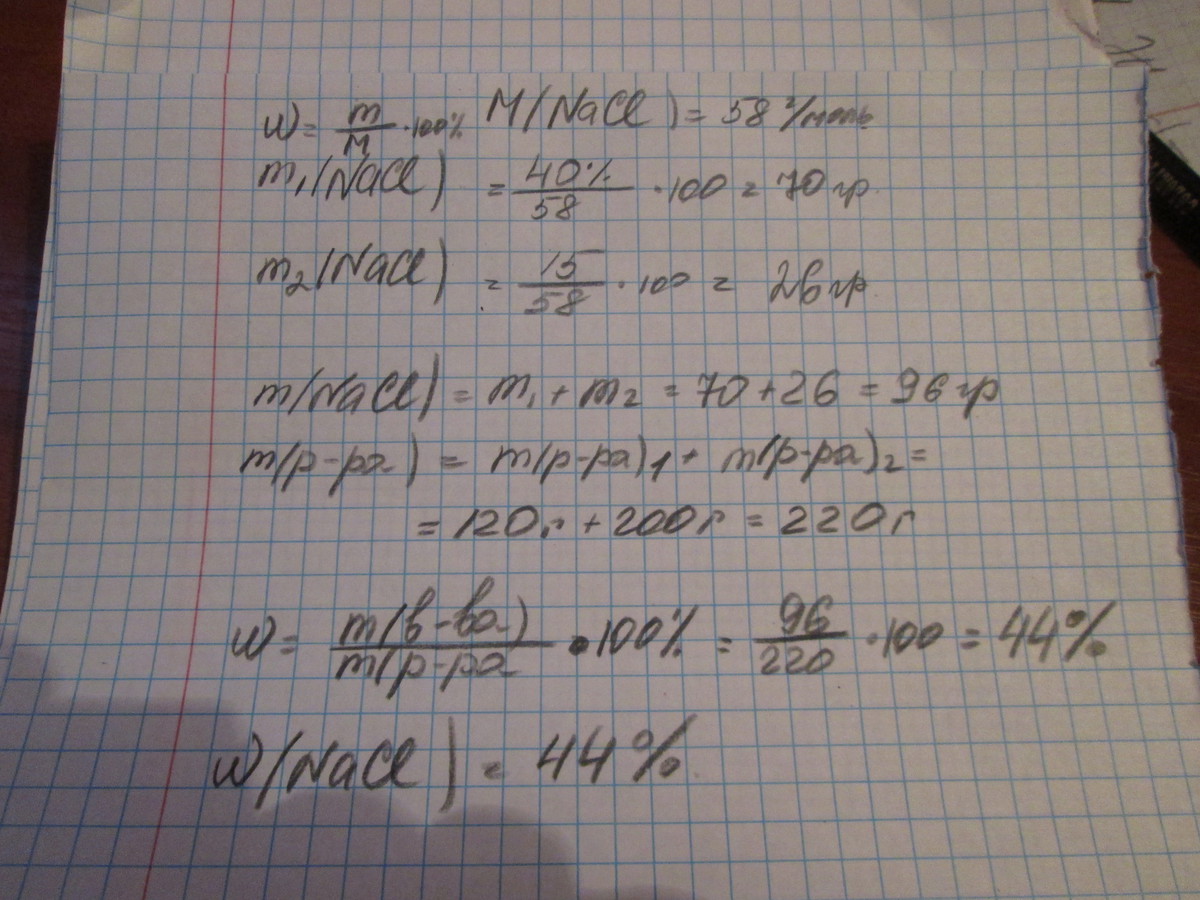 W = m/M · 100% M(NaCl) = 58 г/моль
m₁(NaCl) = 40%/58 · 100 = 70 гр.
m₂(NaCl) = 15/58 · 100 = 26 гр
m(NaCl) = m₁ + m₂ = 70 + 26 = 96 гр
m(р-ра) = m(р-ра)₁ + m(р-ра)₂ =
= 120г + 200г = 220г
W = m(в-ва)/m(р-ра · 100% = 96/220 · 100 = 44%
W(NaCl) = 44%